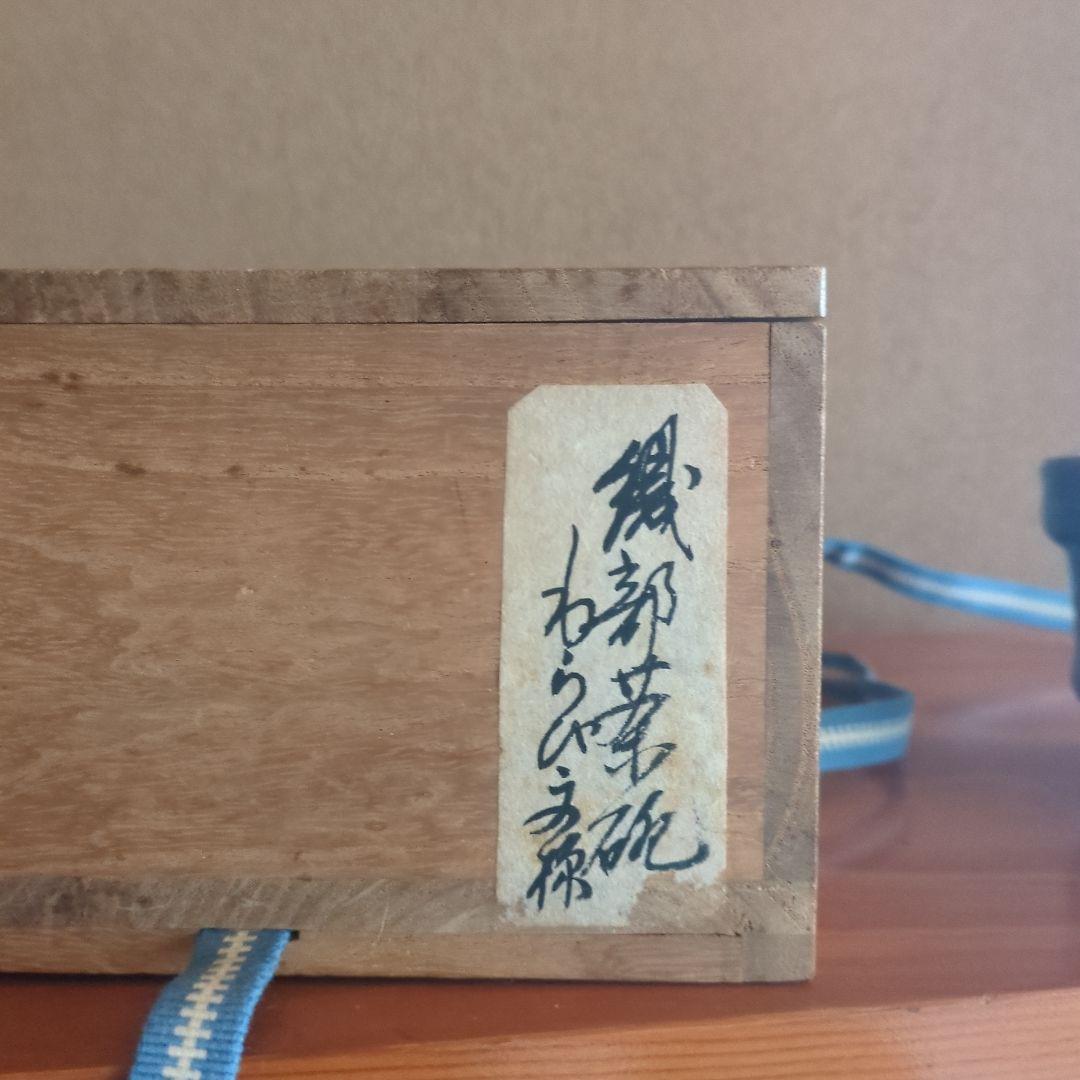 織部茶碗
わらび文様